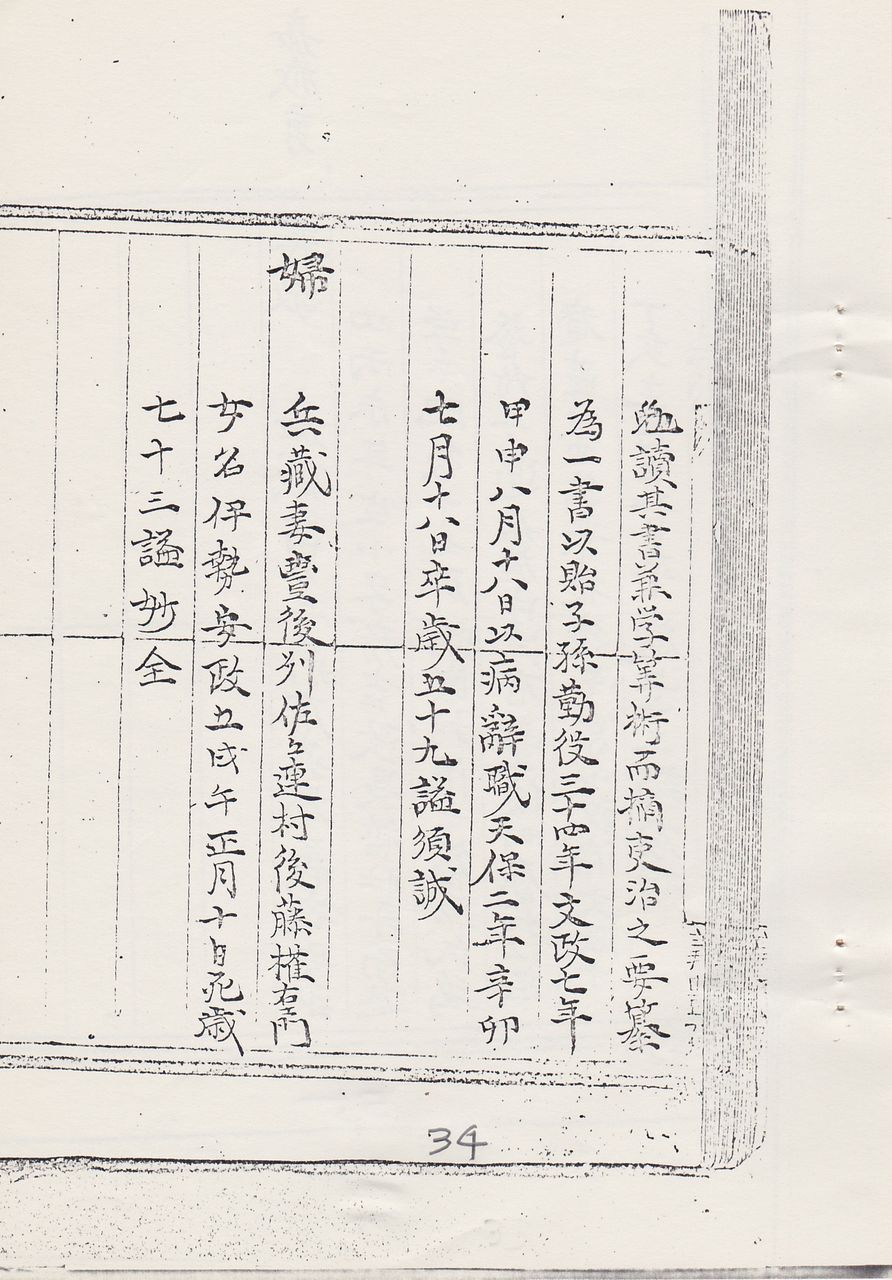 勉讀其書兼学筭術而摘吏治之要纂
為一書以貽子孫勤役三十四年文政七年
甲申八月十八日以病辭職天保二年辛卯
七月十八日卒歳五十九謚須誠
婦
兵藏妻豐後列佐々連村後藤權右門
女名伊勢安政五戊午正月十日死歳
七十三謚妙全
34